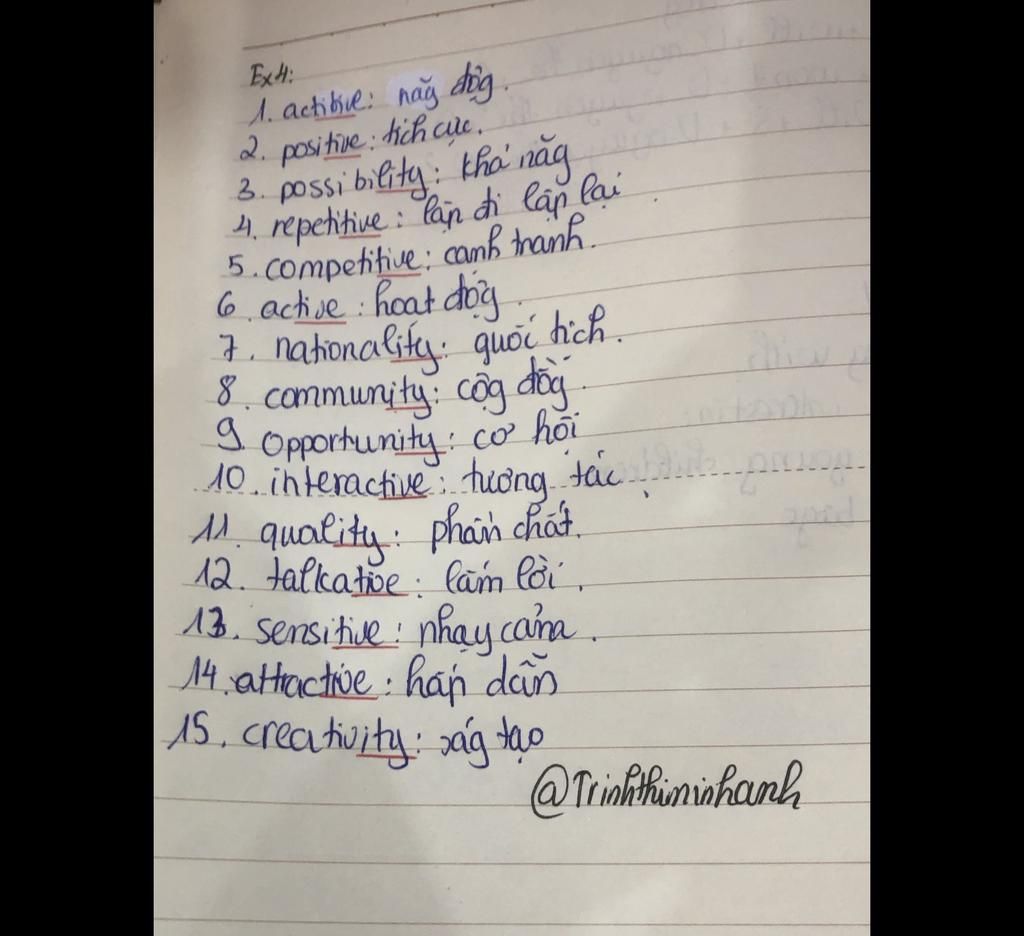 Ex4:
1. actitive: năg độg.
2. positive: tích cực.
3. possibility: khả năg
4. repetitive: lặp đi lặp lại
5. competitive: canh tranh.
6. active: hoat độg.
7. nationality: quốc tich.
8. community: cộg đồg.
9. Opportunity: cơ hội
10. interactive: tương tác.
11. quality: phẩm chất.
12. talkative: lắm lời.
13. sensitive: nhạy cảm.
14. attractive: hấp dẫn
15. creativity: ság tạo
@Trinhthiminhanh